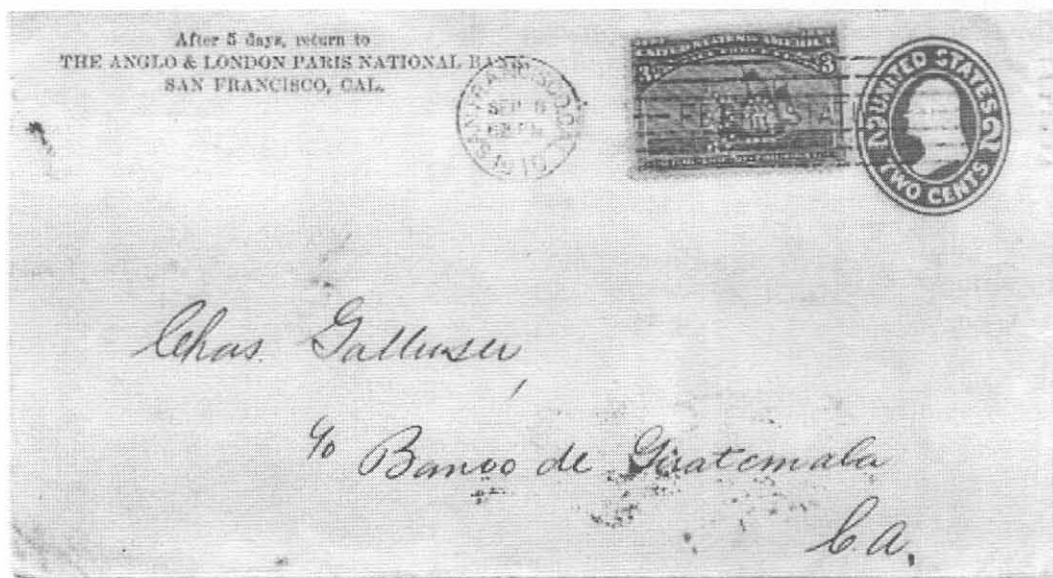 After 5 days, return to
THE ANGLO & LONDON PARIS NATIONAL BANK,
SAN FRANCISCO, CAL.
SAN FRANCISCO, CAL.
SEP
1910
UNITED STATES OF AMERICA
3 3
UNITED STATES
2 2
TWO CENTS
Chas.
c/o Banco de Guatemala
C.A.